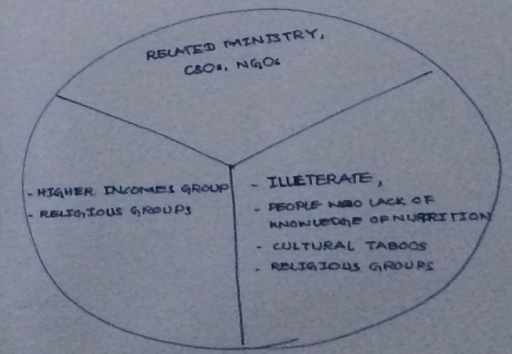 RELATED MINISTRY,
CBOs, NGOs
- HIGHER INCOMES GROUP
- RELIGIOUS GROUPS
- ILLETERATE,
- PEOPLE WHO LACK OF
KNOWLEDGE OF NUTRITION
- CULTURAL TABOOS
- RELIGIOUS GROUPS